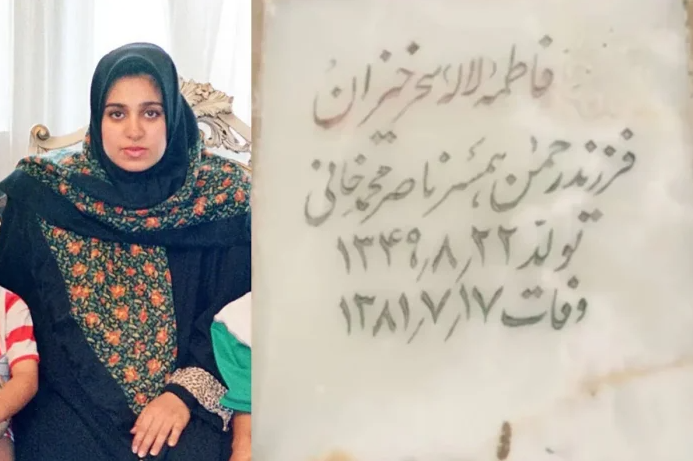 فاطمه (لاله) سحرخیزان
فرزند رحمن، همسر ناصر محمدخانی
تولد ۱۳۴۹٫۸٫۲۲
وفات ۱۳۸۱٫۷٫۱۷